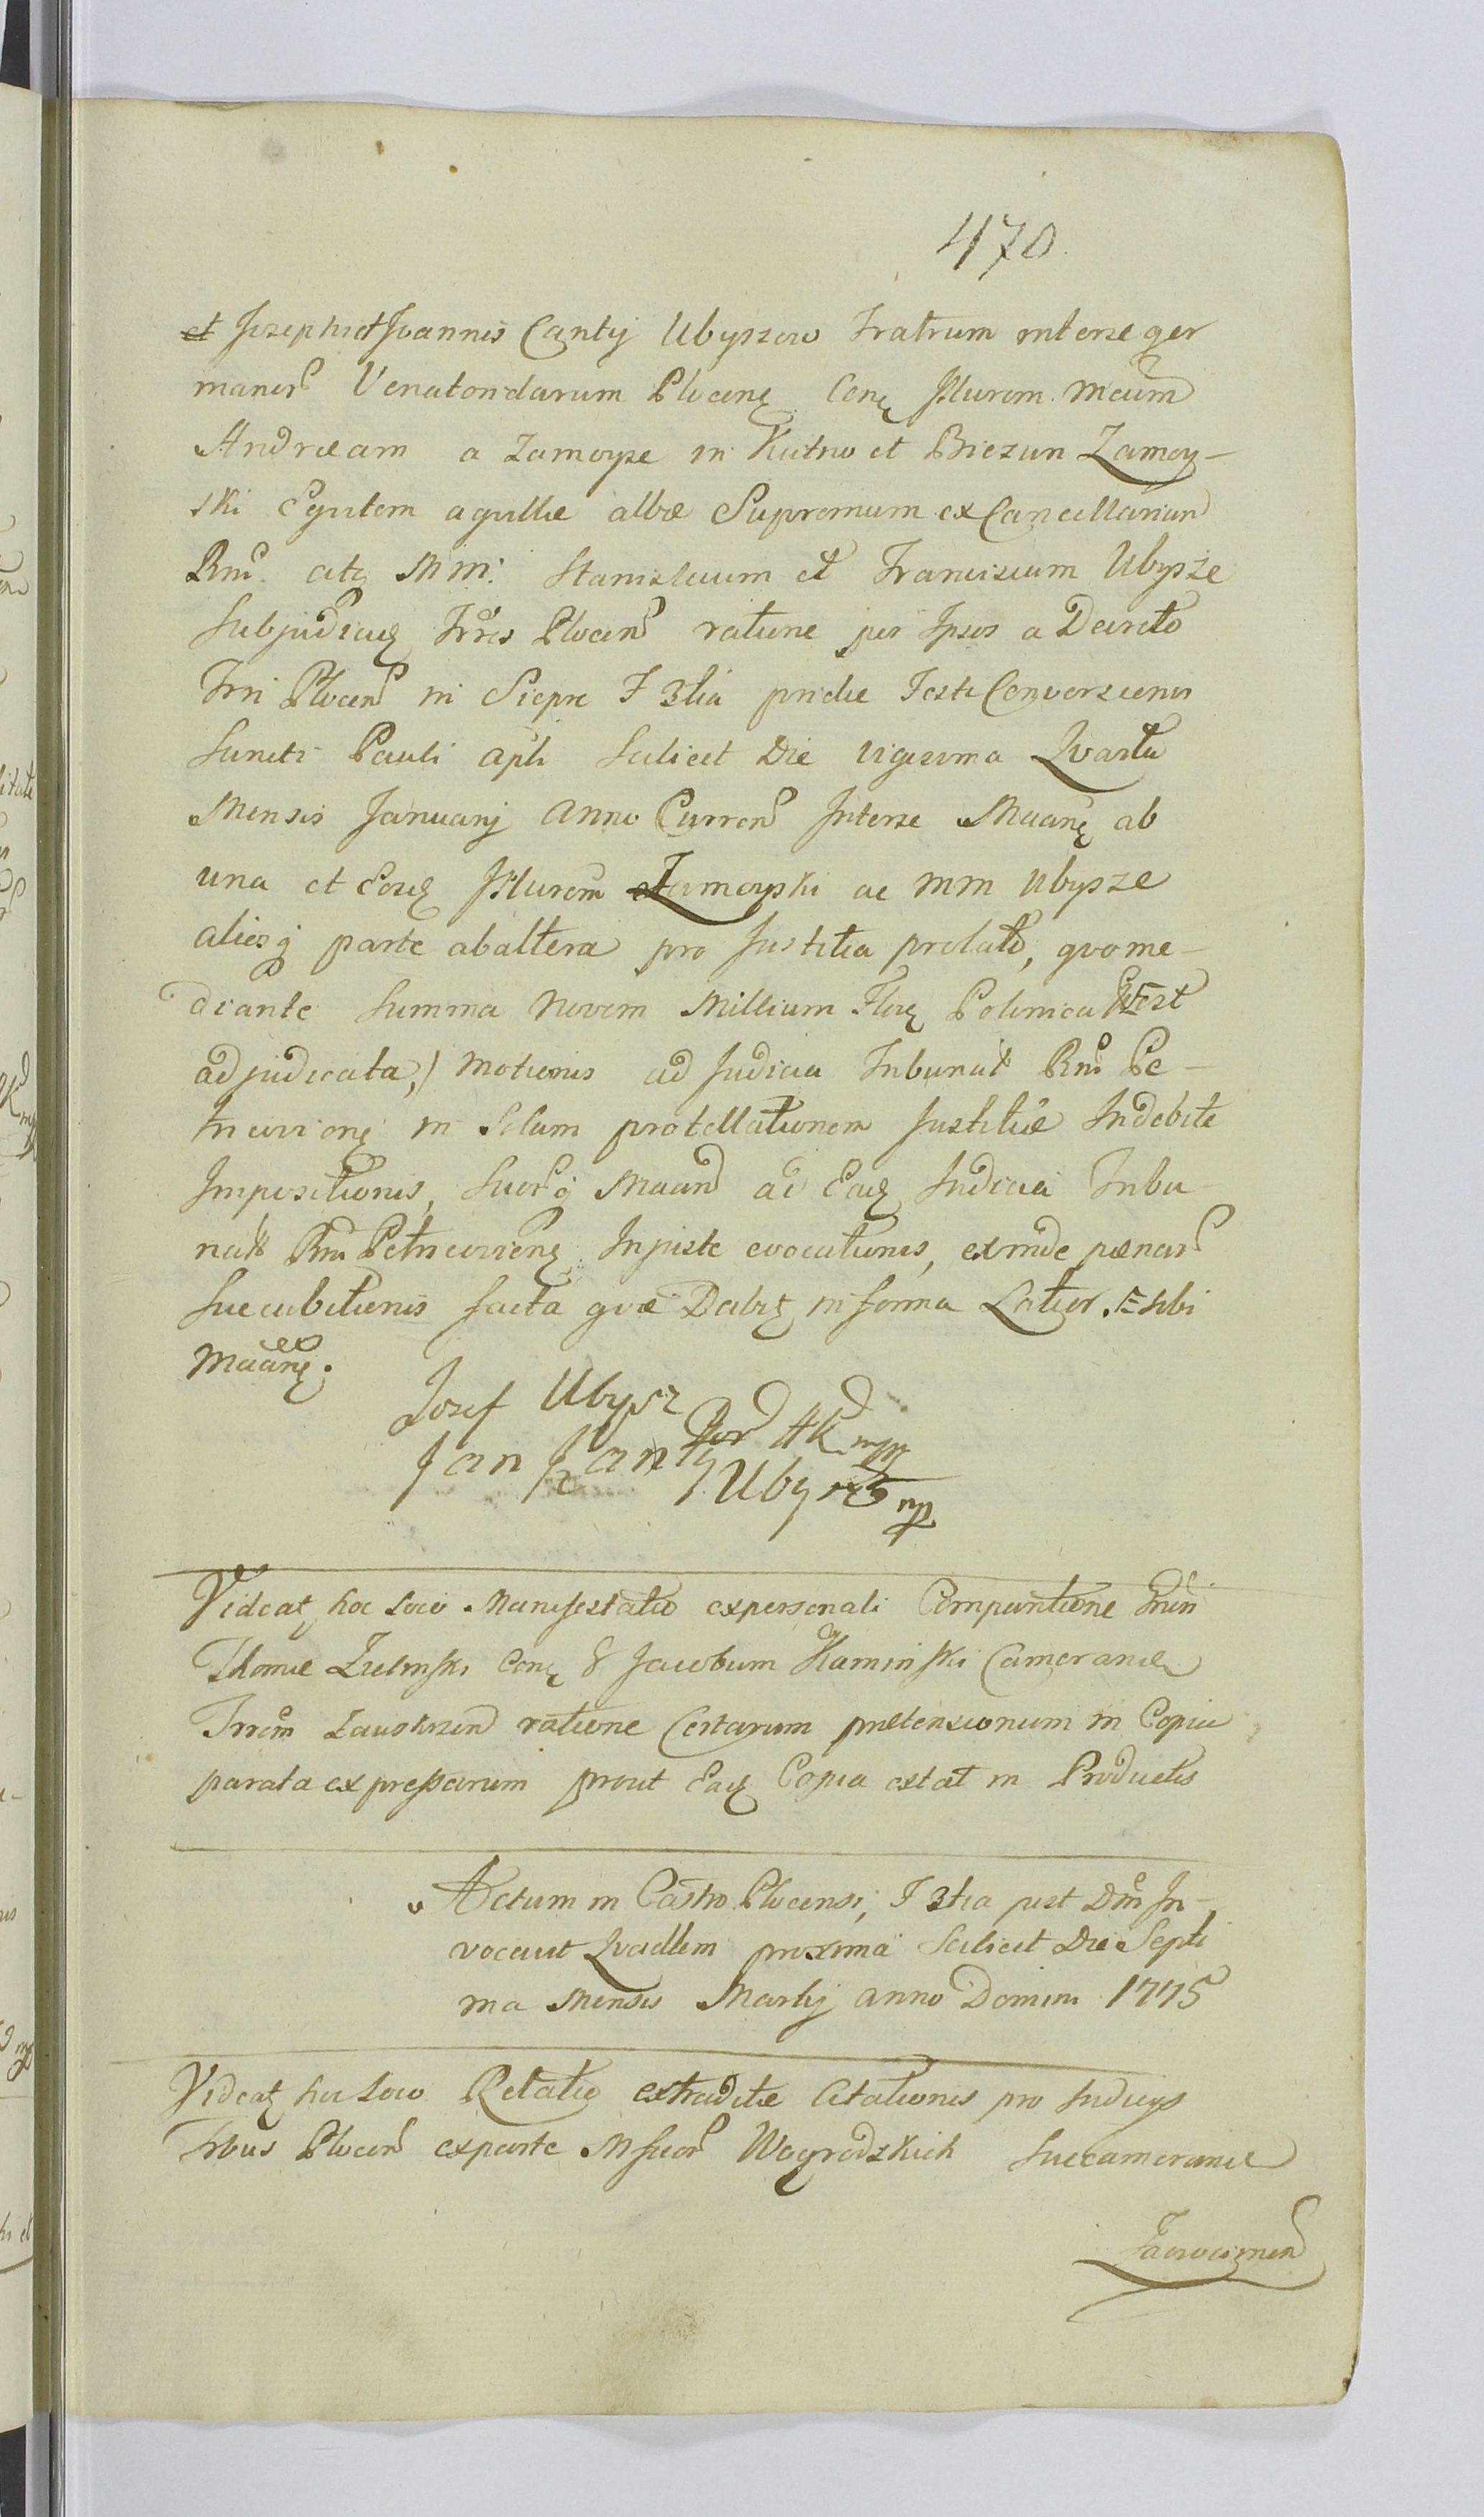 470.
et Josephi et Joannis Cantij Ubyszow Fratrum interse ger
manor Venatoridarum Plocenę Conę Jllurem. Mcum
Andream a Zamoysc in Kutno et Biezun Zamoy-
ski Eqvitem aqvillæ albæ Supremum exCancellarium
Rni. atq MM: Stanislaum et Franciscum Ubysze
Subjudicię Trris Plocen ratione per Ipsos a Decreto
Trri Plocen in Sierpc F 3tia pridie Festi Conversionis
Sancti Pauli Apli Scilicet Die Vigesima Qvarta
Mensis Januarij Anno Curren Interse Maanę ab
una et Eosę Jllurem Zamoyski ac MM Ubysze
aliosq parte abaltera pro Justitia prolato, qvo me-
diante Summa Novem Millium Flor Polonica Est
adjudicata, motionis ad Judicia Tribunal Rni Pe-
tricovienę in Solam protellationem Justitiæ Indebite
Impositionis, Suorq Maan ad Eaę Judicia Tribu
nalis Rni Petricovienę Injuste evocationis, exinde pænar
Succubitionis facta qvæ Dabitę in forma Latior. Esibi
Maanę.
Jozef Ubysz
Jan Kanty Ubysz mp
Videatę hoc Loco Manifestatio expersonali Comparitione
Thomæ Zielinski Conę G Jacobum Kaminski Camerarię
Trrem Zauskrzen ratione Certarum prætensionum in Copia
parata expressarum prout Eaę Copia extat in Productis
Actum in Castro Plocensi, F 3tia post Dnicam In-
vocavit Qvadlem proxima Scilicet Die Septi
ma Mensis Martij Anno Domini 1775
Videatę hoc Loco Relatio extraditæ Citationis pro Judicijs
Trbus Plocen exparte MSuccor Wogrodzkich Succameraniæ